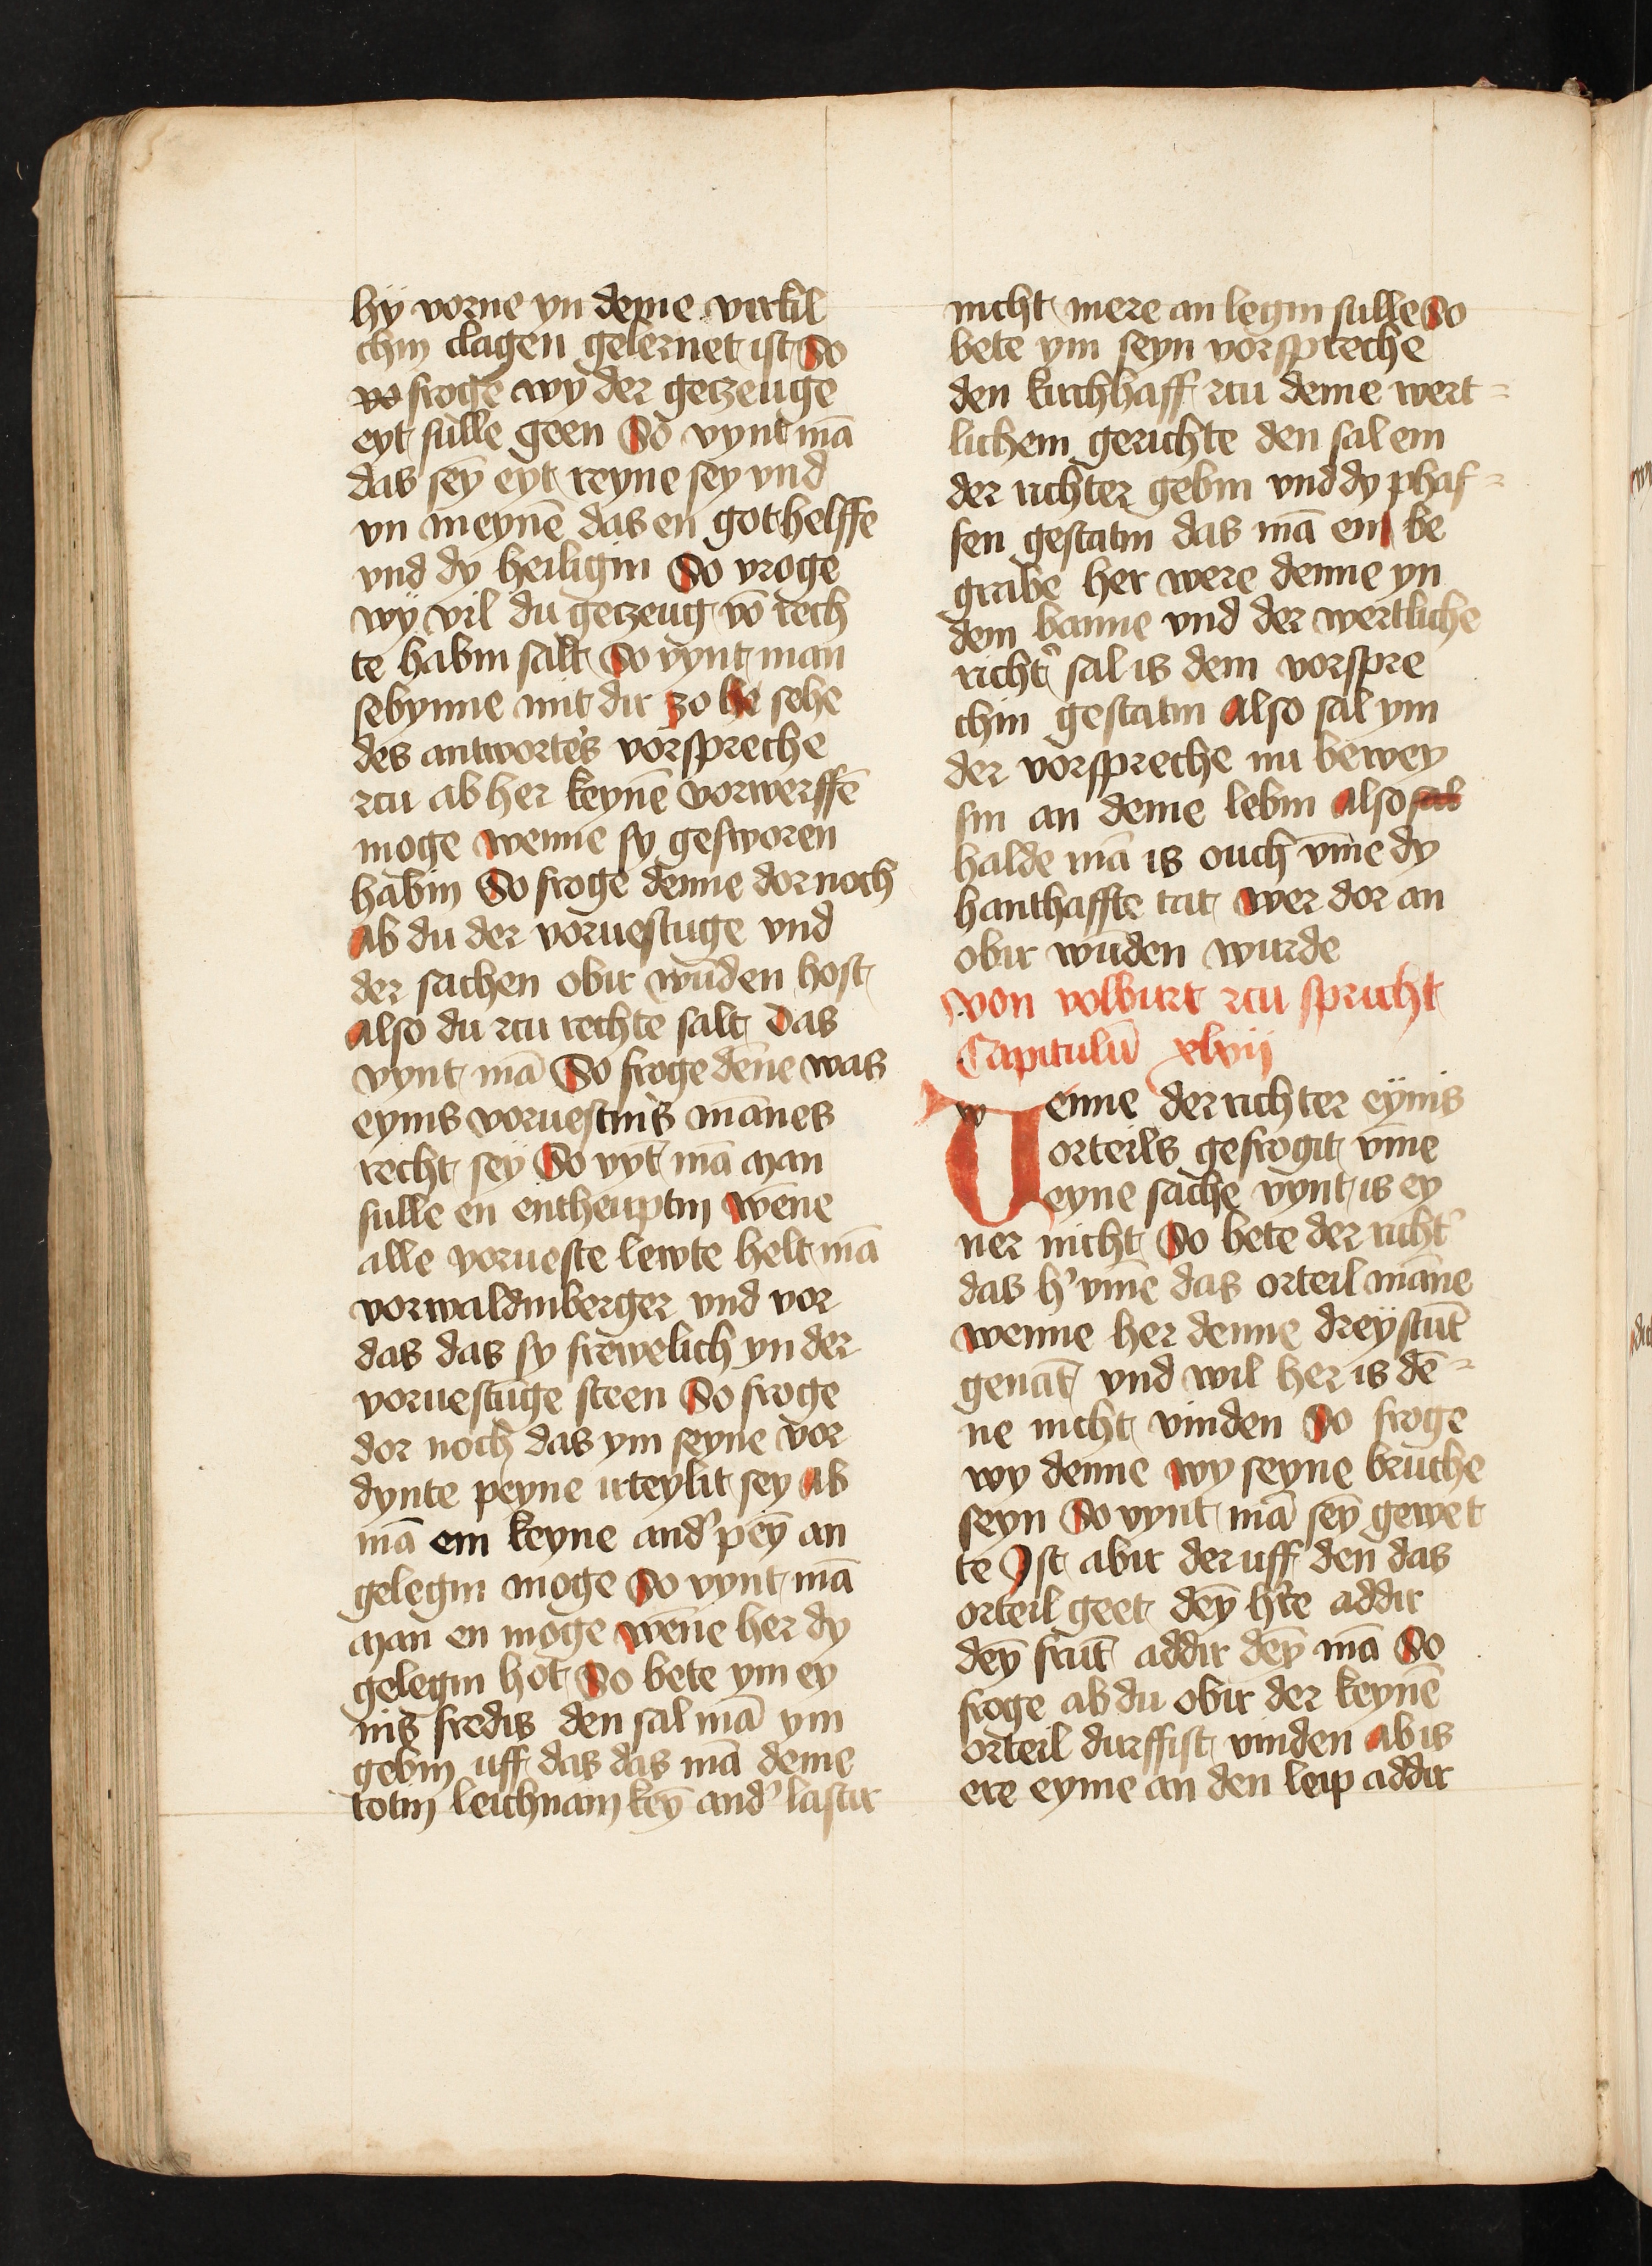 hÿ vorne yn deme virtil
chin clagen gelernet ist So
vo froge wy der geczeuge
eyt sulle geen So vynt mā
das sey̅ eyt reyne sey vnd
vn meynē das en got helffe
vnd dy heiligin So vroge
wÿ vil du geczeug vō rech
te habin salt So vynt man
sebynne mit dir zo he sehe
des antwortes vorspreche
rcu ab her keynē vorwerffē
moge wenne sy gesworen
habin So froge denne dor noch
ab du der voruestūge vnd
der sachen obir wūden host
also du rcu rechte salt das
vynt mā So froge dēne was
eynis voruestnis mānes
recht sey So vy̅t mā man
sulle en entheuptin wēne
alle vorueste lewte helt mā
vorwaldinberger vnd vor
das das sy frewelich yn der
voruestūge steen So froge
dor noch das ym seyne vor
dynte peyne irteylit sey ab
mā em keyne and' pey̅ an
gelegin moge So vynt mā
man en moge wēne her dy
gelegin hot So bete ym ey
nis fredis den sal mā ym
gebin uff das das mā deme
totin leichnam key̅ and' lastir
nicht mere an legin sulle So
bete ym seyn vorspreche
den kirchhaff rcu deme wert=
lichem gerichte den sal em
der richter gebin vnd dy phaf=
fen gestatin das mā em be
grabe her were denne yn
dem banne vnd der wertliche
richt' sal is dem vorspre
chin gestatin Also sal ym
der vorspreche nu bewey
sin an deme lebin Also sal
halde mā is ouch vm̅e dy
hanthaffte tat wer dor an
obir wūden wurde
Von volburt rcu spricht
Capitulū xlvij
Wenne der richter eÿnis
orteils gefrogit vm̅e
eyne sache vynt is ey
ner nicht So bete der richt'
das h' vm̅e das orteil māne
wenne her denne dreÿstūt
genāt vnd wil her is dē=
ne nicht vinden So froge
wy denne wy seyne bruche
seyn So vynt mā sey̅ gewet
te Ist abir der uff den das
orteil geet dey̅ h're addir
dey̅ frūt addir dey̅ mā So
froge ab du obir der keynē
orteil durffist vinden ab is
ere eyme an den leip addir